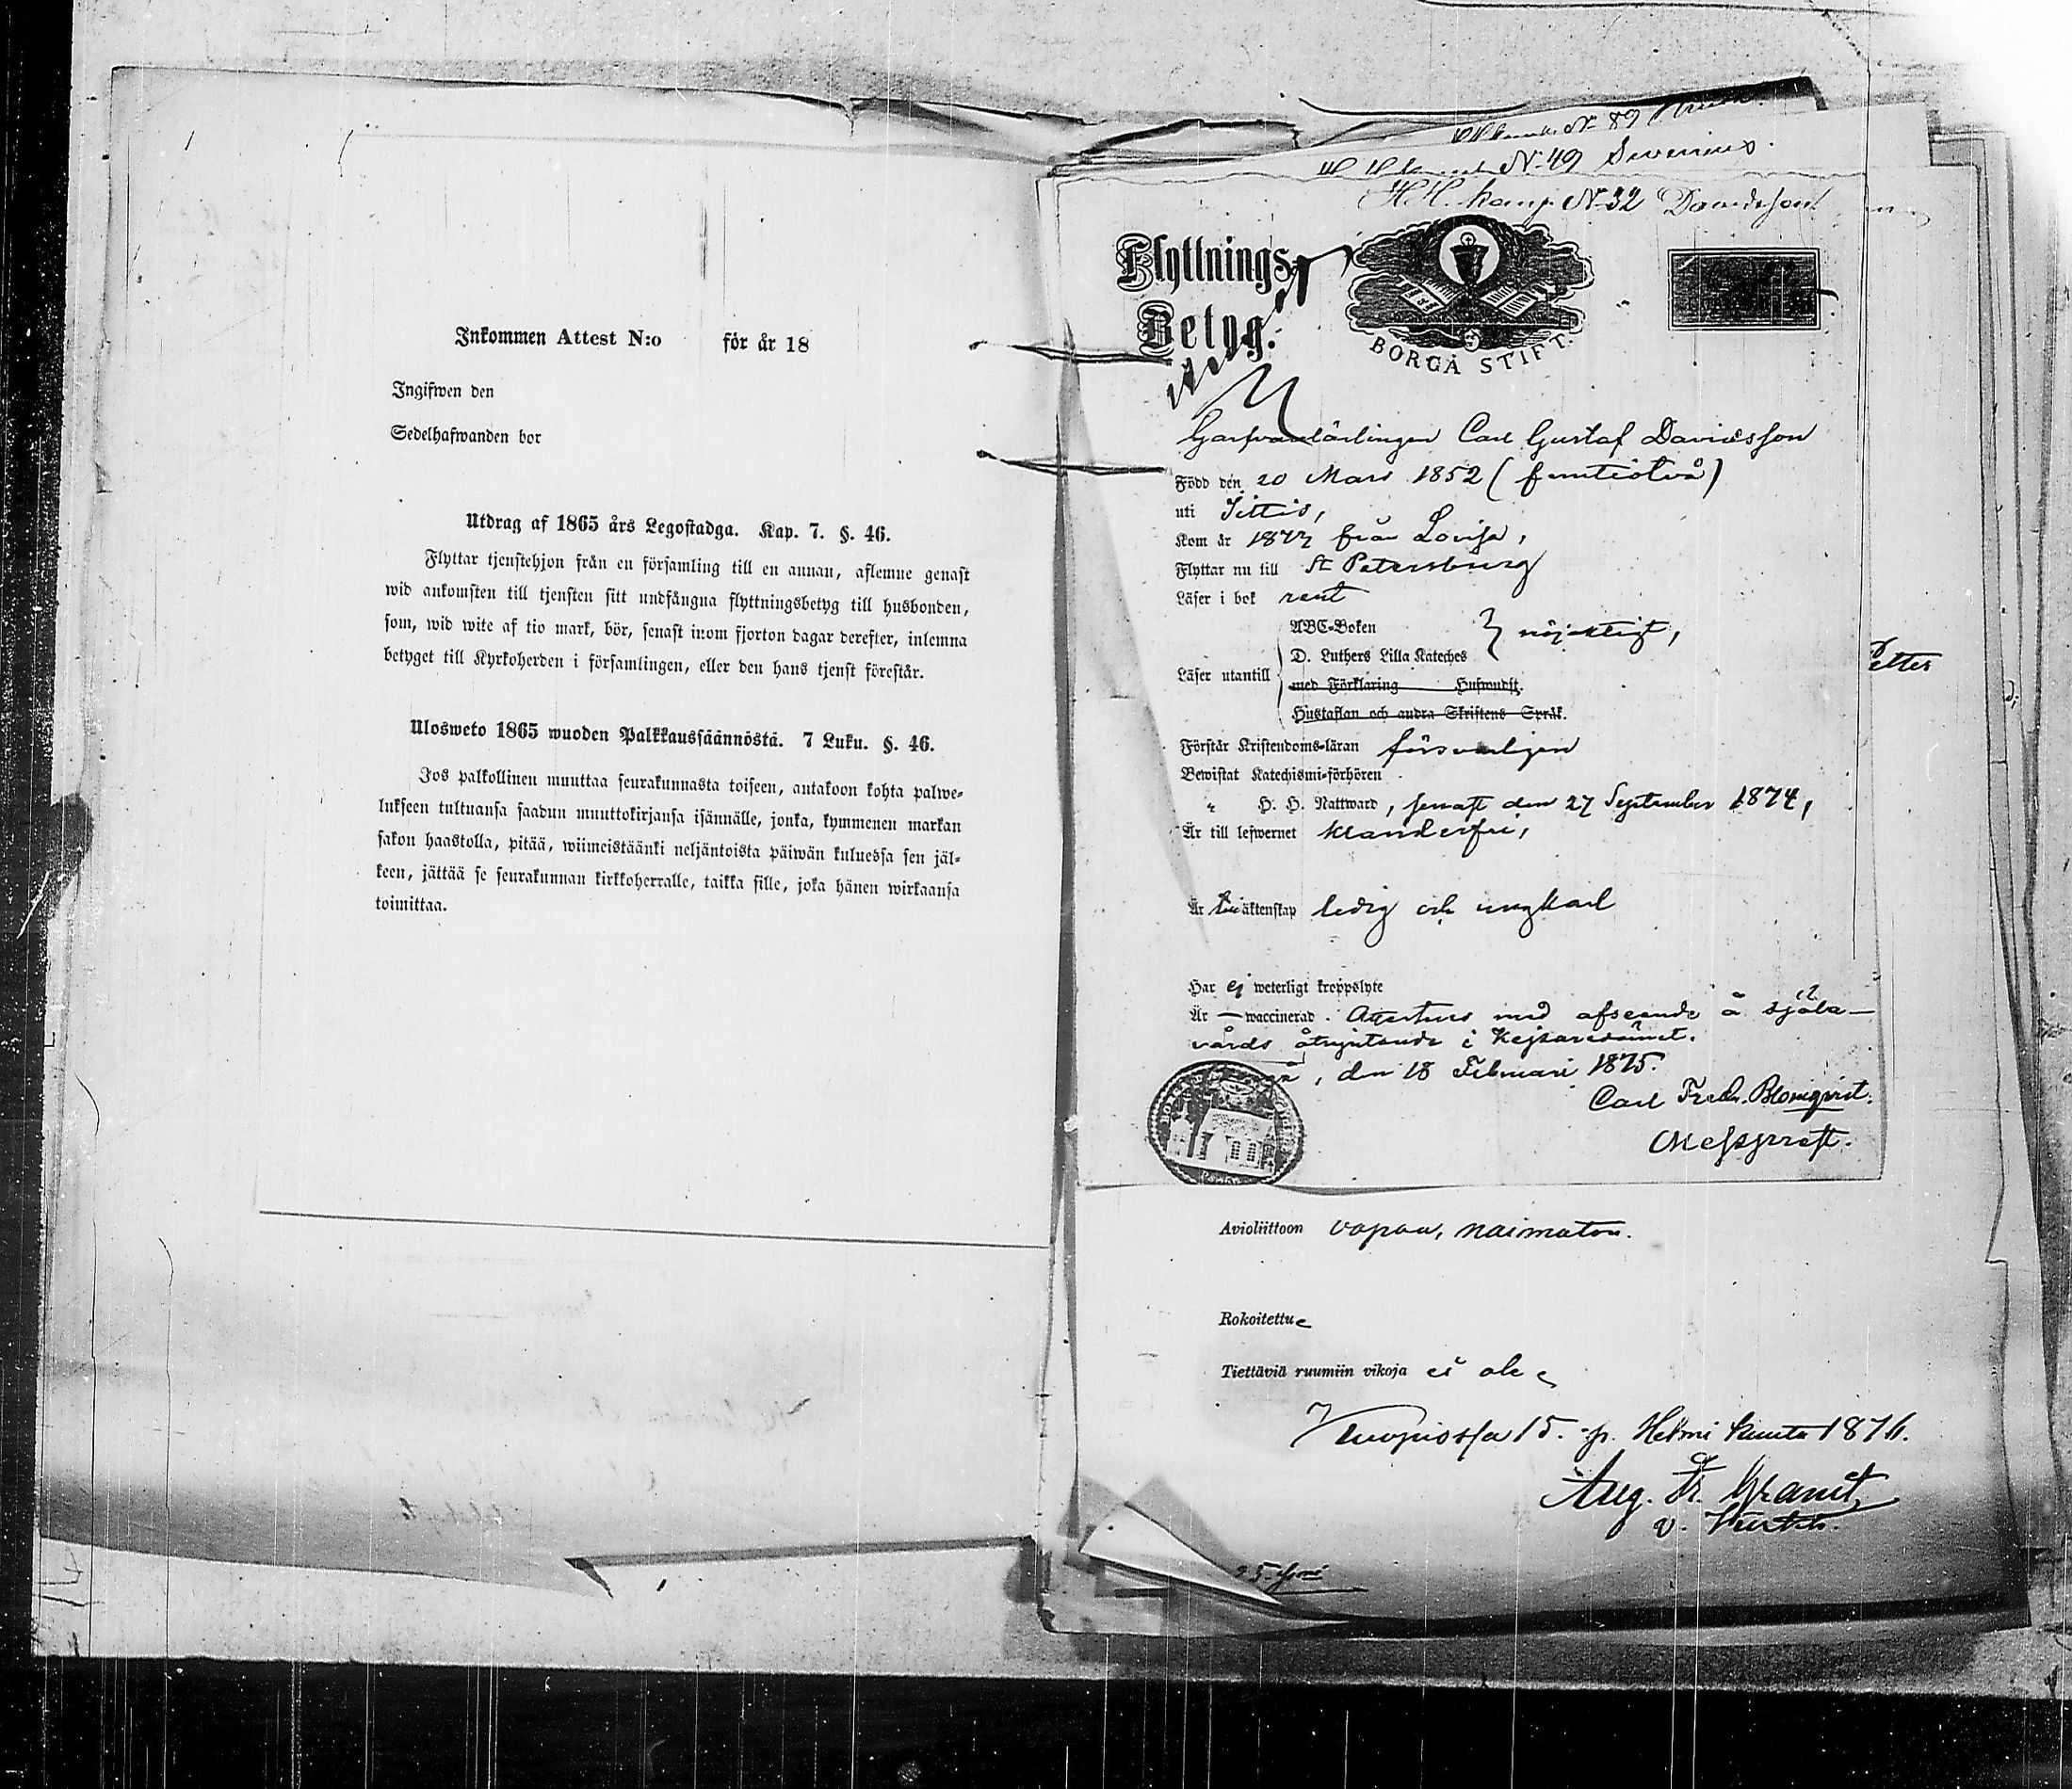 Inkommen Attest N:o för år 18
Ingifwen den
Sedelhafwanden bor
Utdrag af 1865 års Legostadga. Kap. 7. §. 46.
Flyttar tjenstehjon från en församling till en annan, aflemne genast
wid ankomsten till tjensten sitt undfångna flyttningsbetyg till husbonden,
som, wid wite af tio mark, bör, senast inom fjorton dagar derefter, inlemna
betyget till Kyrkoherden i församlingen, eller den hans tjenst förestår.
Ulosweto 1865 wuoden Palkkaussäännöstä. 7 Luku. §. 46.
Jos palkollinen muuttaa seurakunnasta toiseen, antakoon kohta palwe-
lukseen tultuansa saadun muuttokirjansa isännälle, jonka, kymmenen markan
sakon haastolla, pitää, wiimeistäänki neljäntoista päiwän kuluessa sen jäl-
keen, jättää se seurakunnan kirkkoherralle, taikka sille, joka hänen wirkaansa
toimittaa.
N. 89
N. 49 Severinus.
H.H. kamp N. 32 Davidsson
Flyttnings-
Betyg.
BORGÅ STIFT.
Garfvarelärlingen Carl Gustaf Davidsson
Född den 20 Mars 1852 (femtiotvå)
uti Jittis,
Kom år 1873 från Lovisa,
Flyttar nu till St Petersburg
Läser i bok rent
ABC-Boken
D. Luthers Lilla Kateches } nöjaktigt,
Läser utantill
med Förklaring Hufwudst.
Hustaflan och andra Skriftens Språk.
Petter
Förstår Kristendoms-läran försvarligen
Bewistat Katechismi-förhören
" H. H. Nattward, senast den 27 September 1874,
Är till lefwernet klanderfri,
Är till äktenskap ledig och ungkarl
Har ej weterligt kroppslyte
Är — waccinerad. Attesteras med afseende å själa-
vårds åtnjutande i Kejsaredömet.
den 18 Februari 1875.
Carl Fredr. Blomqvist.
Avioliittoon vapaa, naimaton.
Rokoitettu
Tiettäviä ruumiin vikoja ei ole
Kuopiossa 15. p. Helmi kuuta 1876.
Aug. Fr. Granit